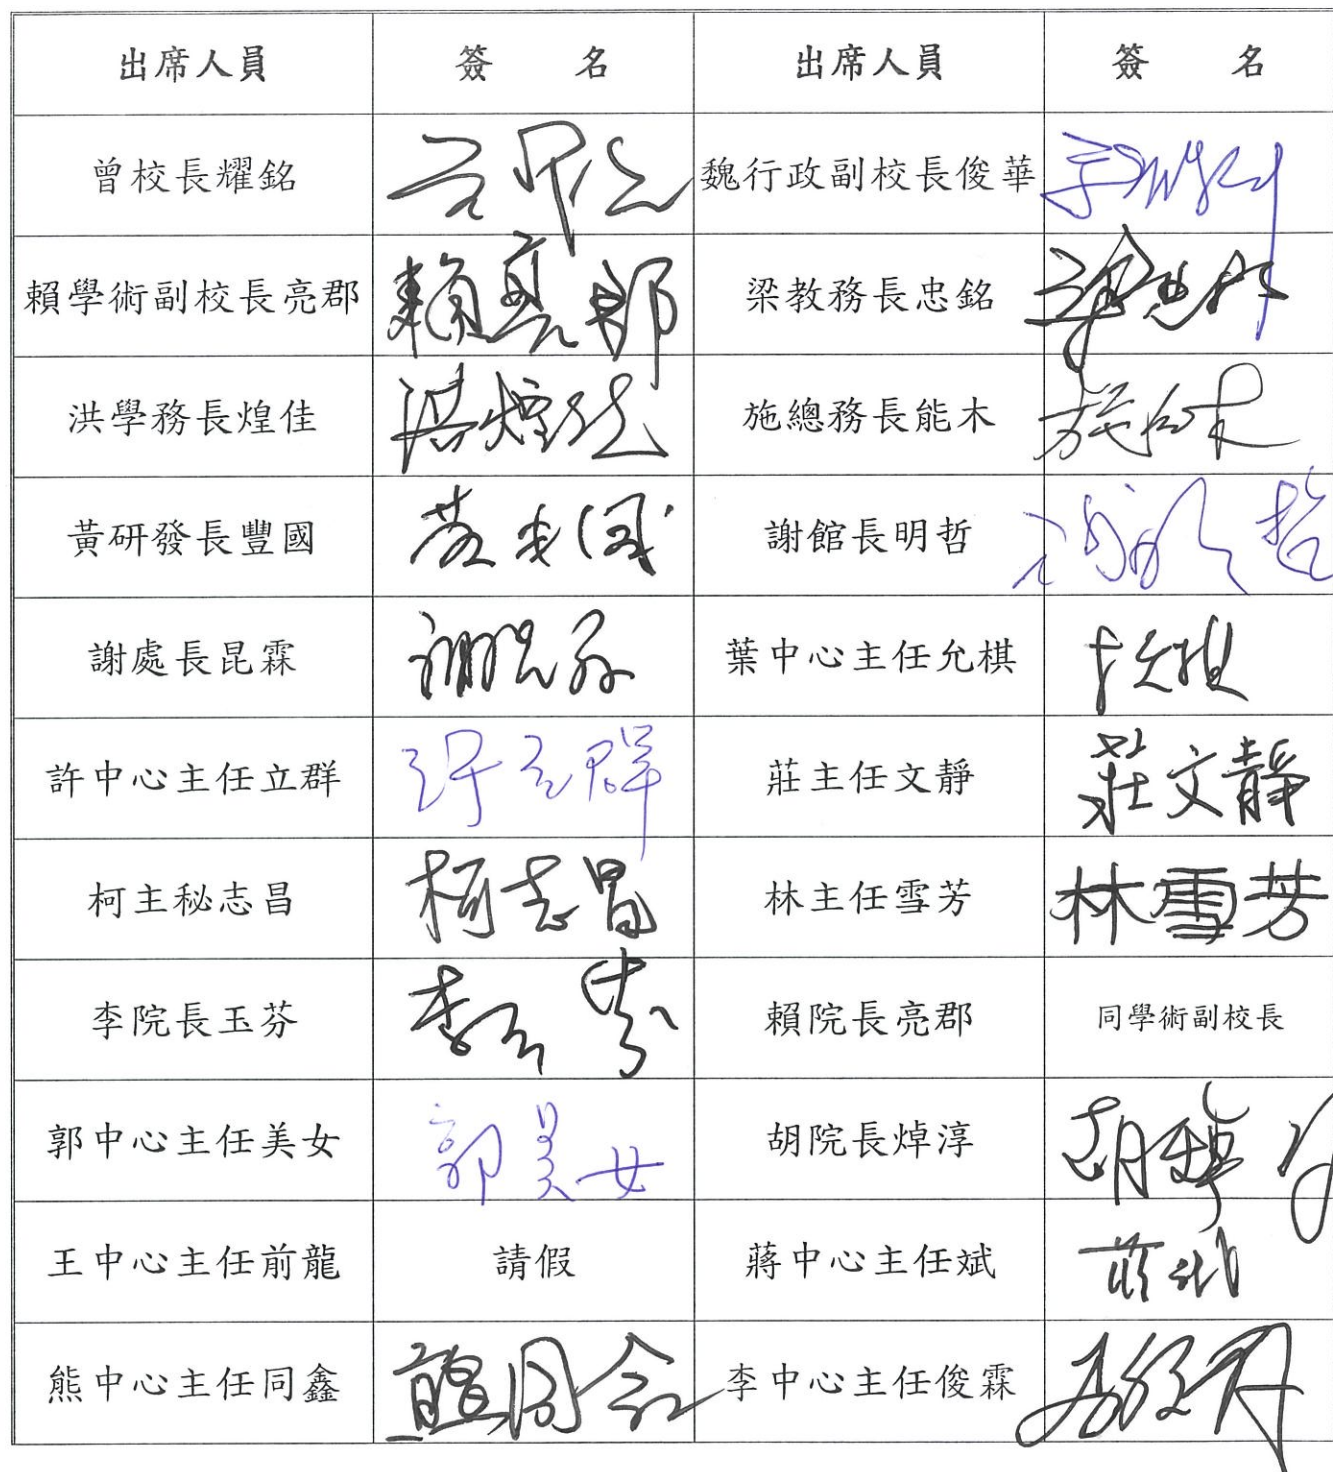 出席人員 簽 名 出席人員 簽 名
曾校長耀銘 魏行政副校長俊華
賴學術副校長亮郡 賴亮郡 梁教務長忠銘 梁忠銘
洪學務長煌佳 洪煌佳 施總務長能木 施能木
黃研發長豐國 謝館長明哲 謝明哲
謝處長昆霖 謝昆霖 葉中心主任允棋
許中心主任立群 許立群 莊主任文靜 莊文靜
柯主秘志昌 柯志昌 林主任雪芳 林雪芳
李院長玉芬 李玉芬 賴院長亮郡 同學術副校長
郭中心主任美女 郭美女 胡院長焯淳 胡焯淳
王中心主任前龍 請假 蔣中心主任斌 蔣斌
熊中心主任同鑫 熊同鑫 李中心主任俊霖